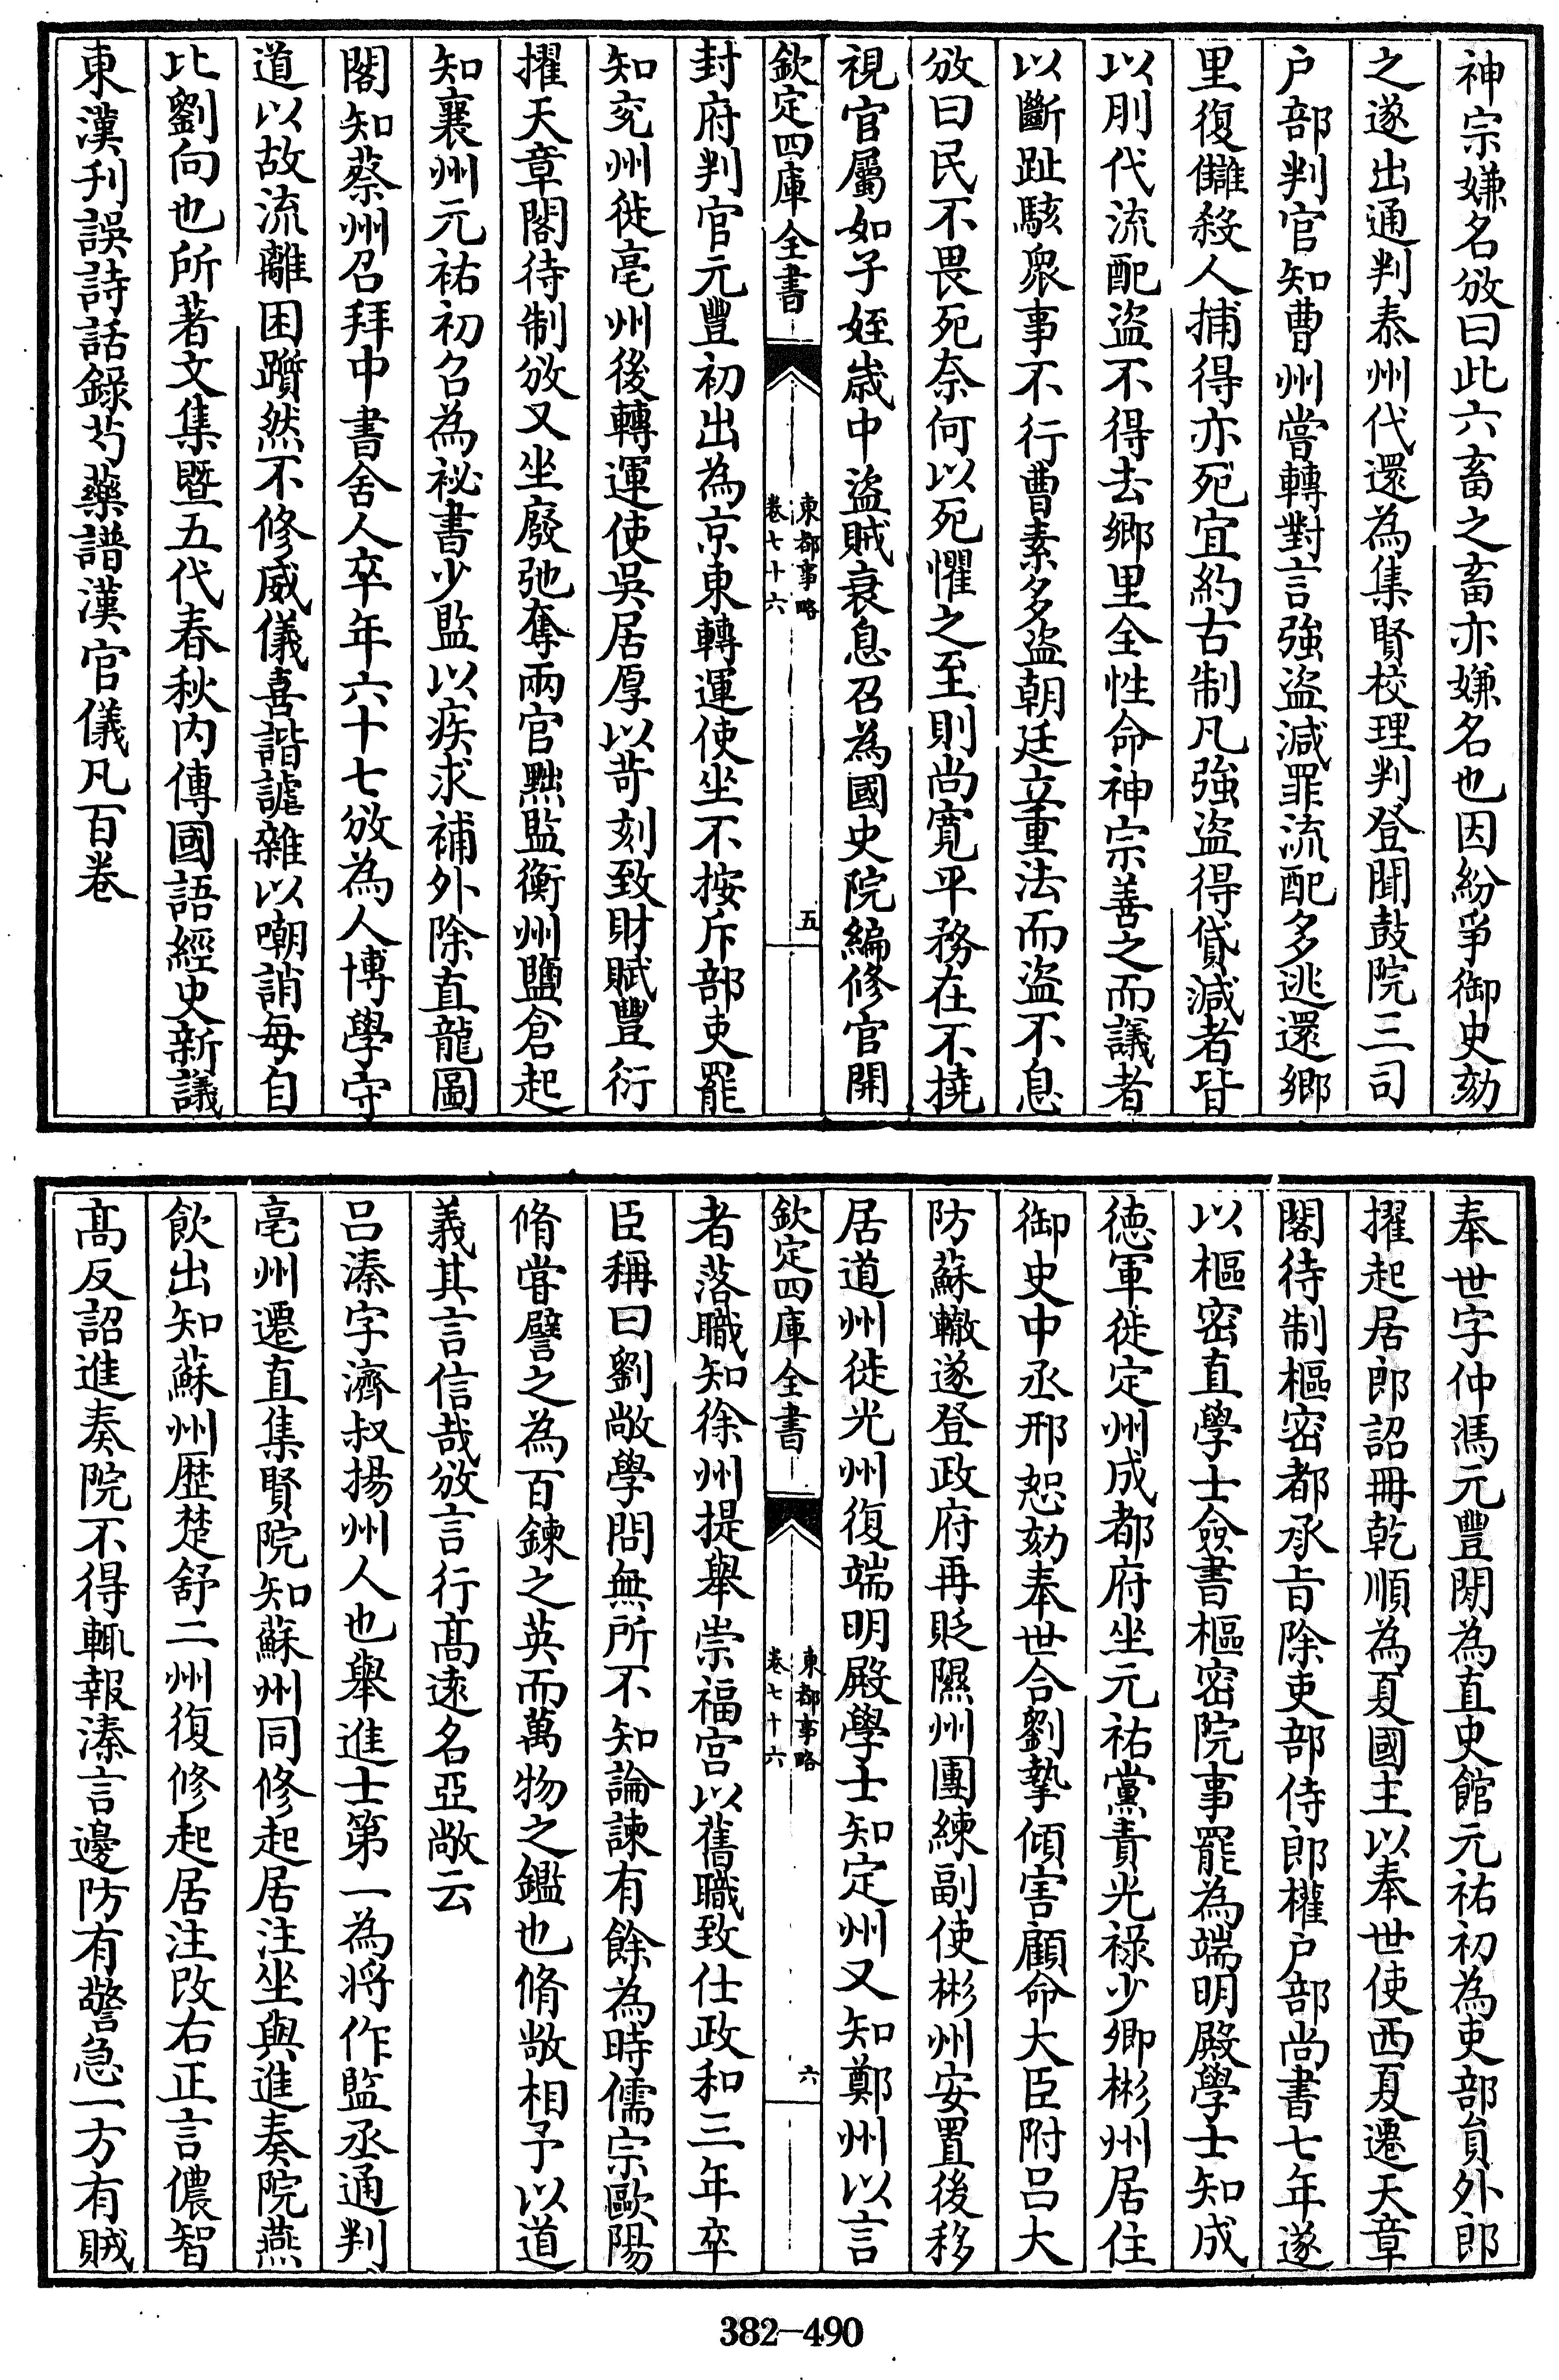 神宗嫌名攽曰此六畜之畜亦嫌名也因紛爭御史劾
之遂出通判泰州代還為集賢校理判登聞鼓院三司
户部判官知曹州嘗轉對言強盜減罪流配多逃還鄉
里復讎殺人捕得亦死宜約古制凡強盜得貸減者皆
以刖代流配盜不得去鄉里全性命神宗善之而議者
以斷趾駭衆事不行曹素多盜朝廷立重法而盜不息
攽曰民不畏死奈何以死懼之至則尚寛平務在不撓
視官屬如子姪歲中盜賊衰息召為國史院編修官開
欽定四庫全書
東都事略
卷七十六
五
封府判官元豐初出為京東轉運使坐不按斥部吏罷
知兖州徙亳州後轉運使吳居厚以苛刻致財賦豐衍
擢天章閣待制攽又坐廢弛奪兩官黜監衡州鹽倉起
知襄州元祐初召為祕書少監以疾求補外除直龍圖
閣知蔡州召拜中書舍人卒年六十七攽為人博學守
道以故流離困躓然不修威儀喜諧謔雜以嘲誚每自
比劉向也所著文集暨五代春秋内傳國語經史新議
東漢刋誤詩話錄芍藥譜漢官儀凡百卷
奉世字仲馮元豐閒為直史館元祐初為吏部員外郎
擢起居郎詔冊乾順為夏國主以奉世使西夏遷天章
閣待制樞密都承旨除吏部侍郎權户部尚書七年遂
以樞密直學士僉書樞密院事罷為端明殿學士知成
徳軍徙定州成都府坐元祐黨責光祿少卿彬州居住
御史中丞邢恕劾奉世合劉摯傾害顧命大臣附吕大
防蘇轍遂登政府再貶隰州團練副使彬州安置後移
居道州徙光州復端明殿學士知定州又知鄭州以言
欽定四庫全書
東都事略
卷七十六
六
者落職知徐州提舉崇福宫以舊職致仕政和三年卒
臣稱曰劉敞學問無所不知論諫有餘為時儒宗歐陽
脩嘗譬之為百鍊之英而萬物之鑑也脩敞相予以道
義其言信哉攽言行髙逺名亞敞云
吕溱字濟叔揚州人也舉進士第一為將作監丞通判
亳州遷直集賢院知蘇州同修起居注坐與進奏院燕
飲出知蘇州歴楚舒二州復修起居注改右正言儂智
髙反詔進奏院不得輒報溱言邊防有警急一方有賊
382-490